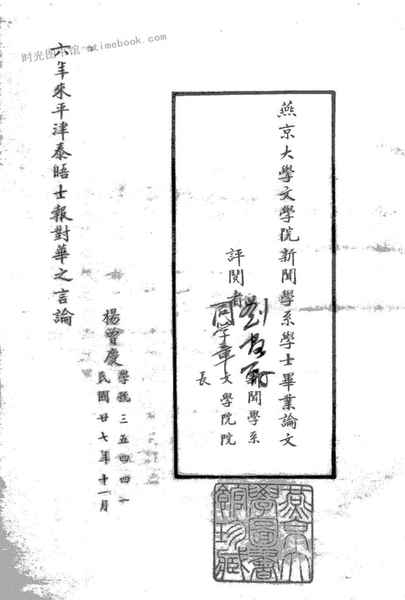 时光图书馆-etimebook.com
燕京大學文學院新聞學系學士畢業論文
評閱者
劉
新聞學系
周学章
文學院院
長
燕京大
學圖書
館珍藏
六年來平津泰晤士報對華之言論
楊曾慶
學號三五四四一
民國廿七年十一月